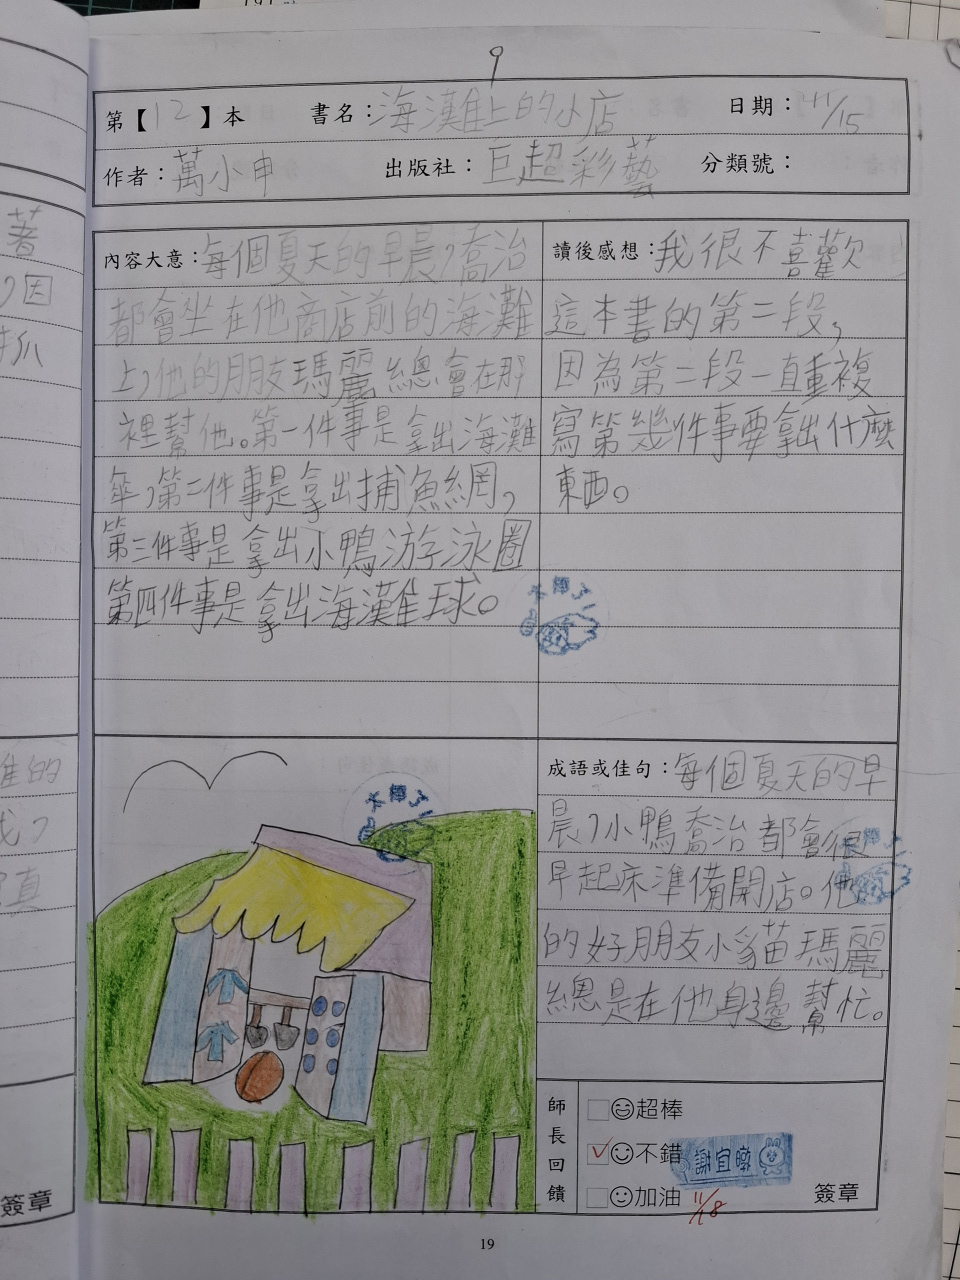 9
第【12】本 書名：海灘上的小店 日期：11/15
作者：萬小申 出版社：巨超彩藝 分類號：
內容大意：每個夏天的早晨，喬治
都會坐在他商店前的海灘
上，他的朋友瑪麗總會在那
裡幫他。第一件事是拿出海灘
傘，第二件事是拿出捕魚網，
第三件事是拿出小鴨游泳圈
第四件事是拿出海灘球。
讀後感想：我很不喜歡
這本書的第二段，
因為第二段一直重複
寫第幾件事要拿出什麼
東西。
太棒了
太棒了
成語或佳句：每個夏天的早
晨，小鴨喬治都會很
早起床準備開店。他
的好朋友小貓瑪麗
總是在他身邊幫忙。
棒
師長回饋
超棒
✓不錯
加油 11/18
謝宜
簽章
19
著
，因
抓
的
，
真
簽章